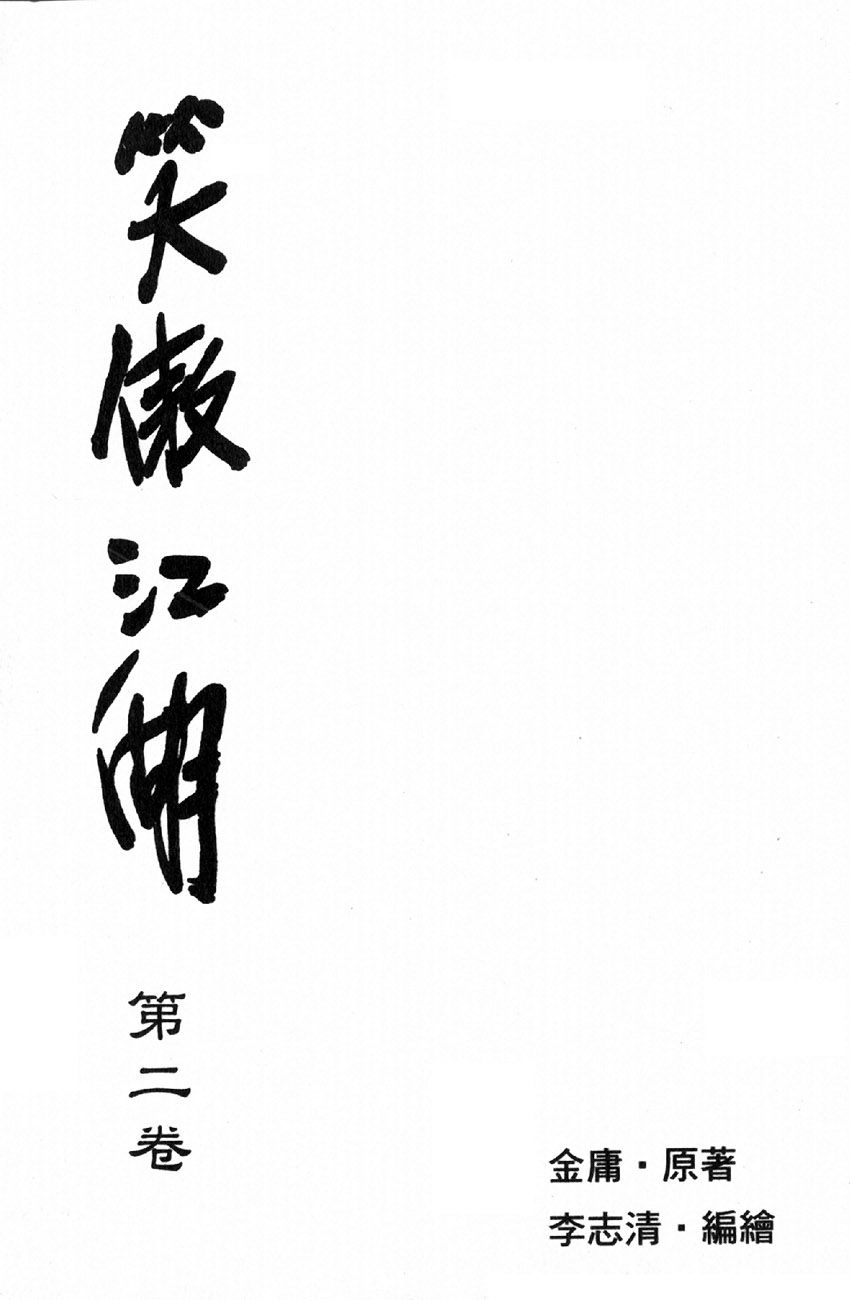 笑傲江湖
第二卷
金庸·原著
李志清·編繪